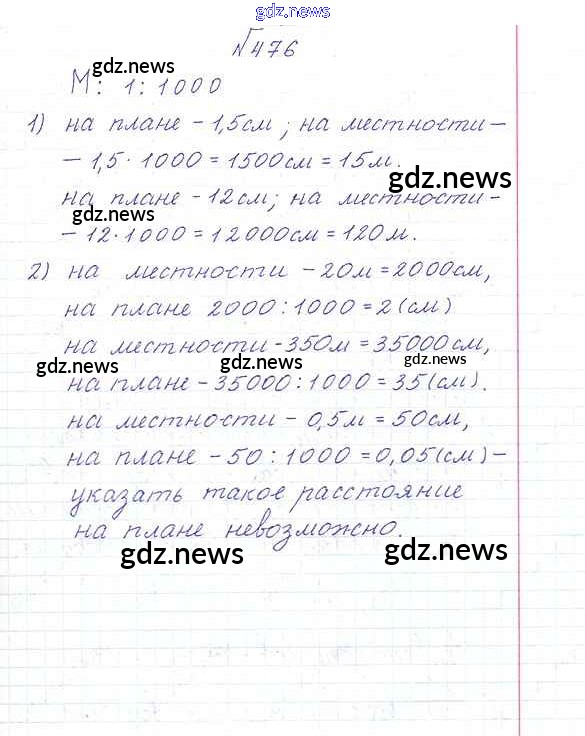 gdz.news
№476
gdz.news
М: 1:1000
1) на плане - 1,5см; на местности -
- 1,5·1000=1500см=15м.
gdz.news
на плане -12см; на местности -
gdz.news
- 12·1000=12000см=120м.
2) на местности -20м=2000см,
на плане 2000:1000=2(см)
на местности -350м=35000см,
gdz.news gdz.news gdz.news
на плане -35000:1000=35(см).
на местности - 0,5м=50см,
на плане -50:1000=0,05(см)-
указать такое расстояние
на плане невозможно.
gdz.news gdz.news